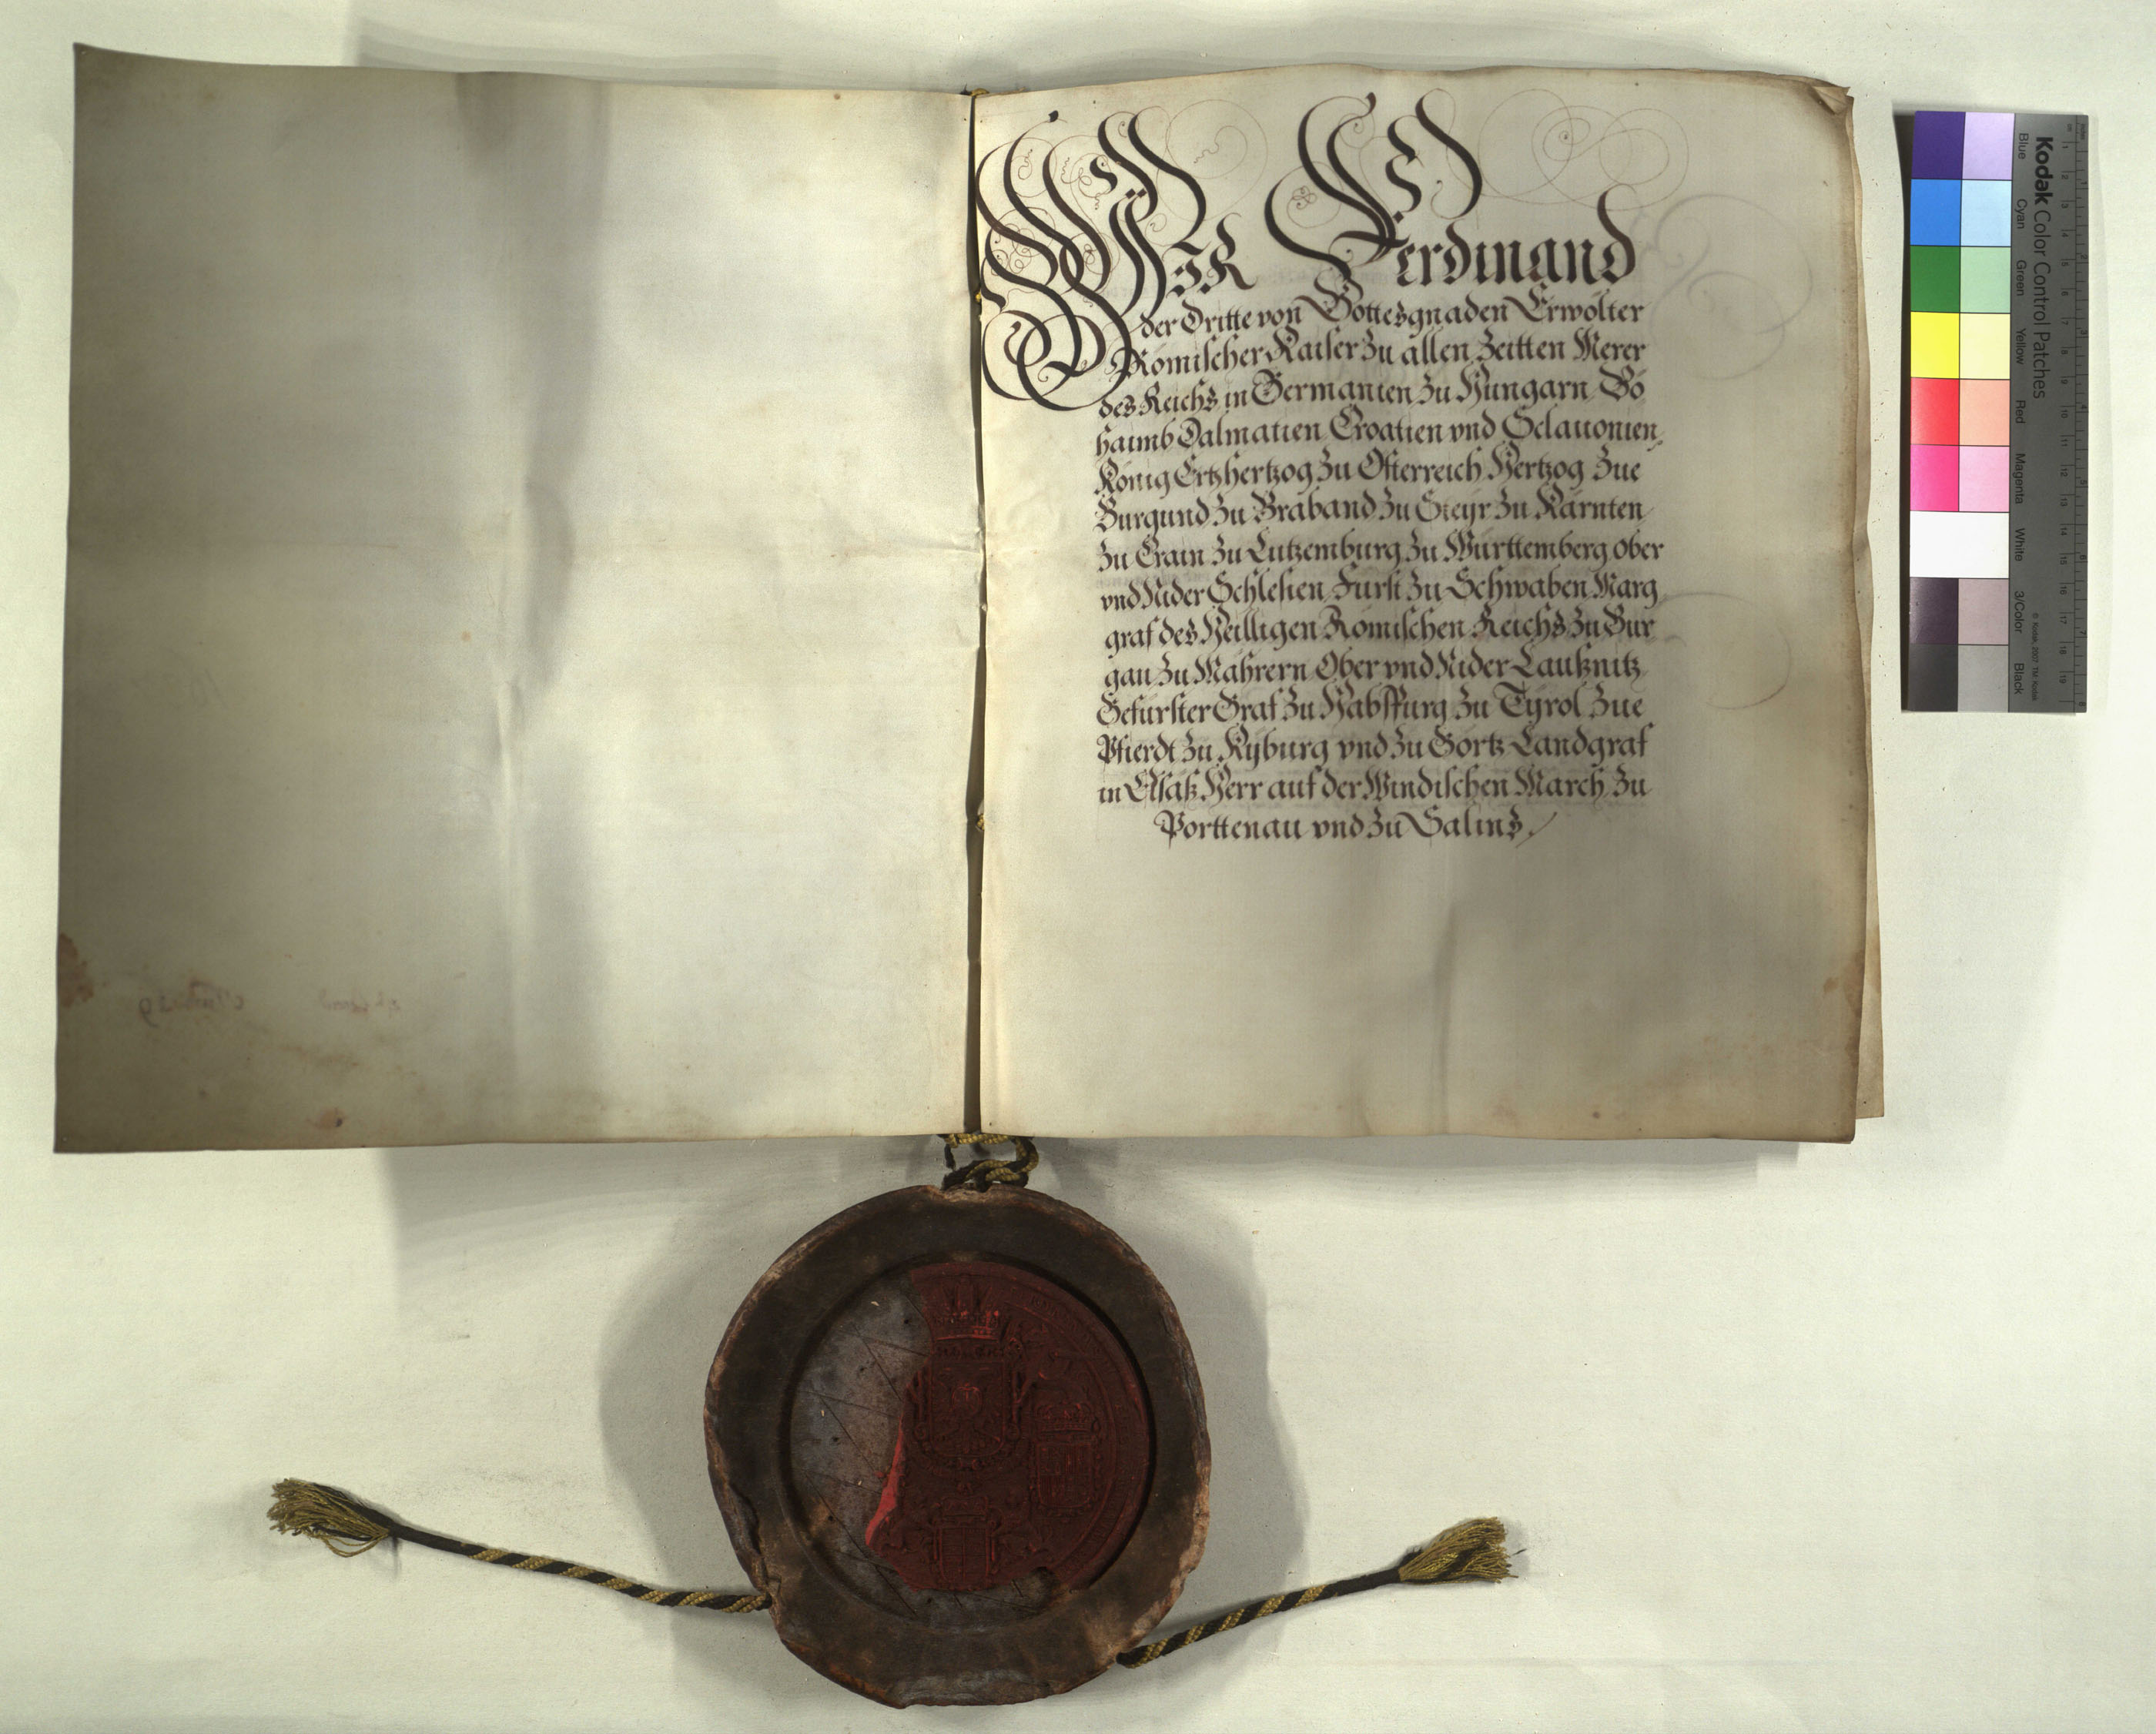 Wir Ferdinand
der Dritte von Gottes gnaden Erwölter
Römischer Kaiser Zu allen Zeitten Merer
des Reichs in Germanien Zu Hungarn Bö
haimb Dalmatien Croatien vnd Sclauonien,
König Ertzhertzog Zu Österreich Hertzog Zue
Burgund Zu Braband Zu Steyr Zu Kärnten
Zu Crain Zu Lutzemburg Zu Württemberg Ober
vnd Nider Schlesien Fürst Zu Schwaben Marg
graf des Heilligen Römischen Reichs Zu Bur
gau Zu Mährern Ober vnd Nider Laußnitz
Gefürster Graf Zu Habspurg Zu Tyrol Zue
Pfierdt Zu Kyburg vnd Zu Görtz Landgraf
in Elsäß Herr auf der Windischen March Zu
Porttenau vnd Zu Salins
Kodak Color Control Patches
© Kodak, 2007 TM: Kodak
Blue Cyan Green Yellow Red Magenta White 3/Color Black